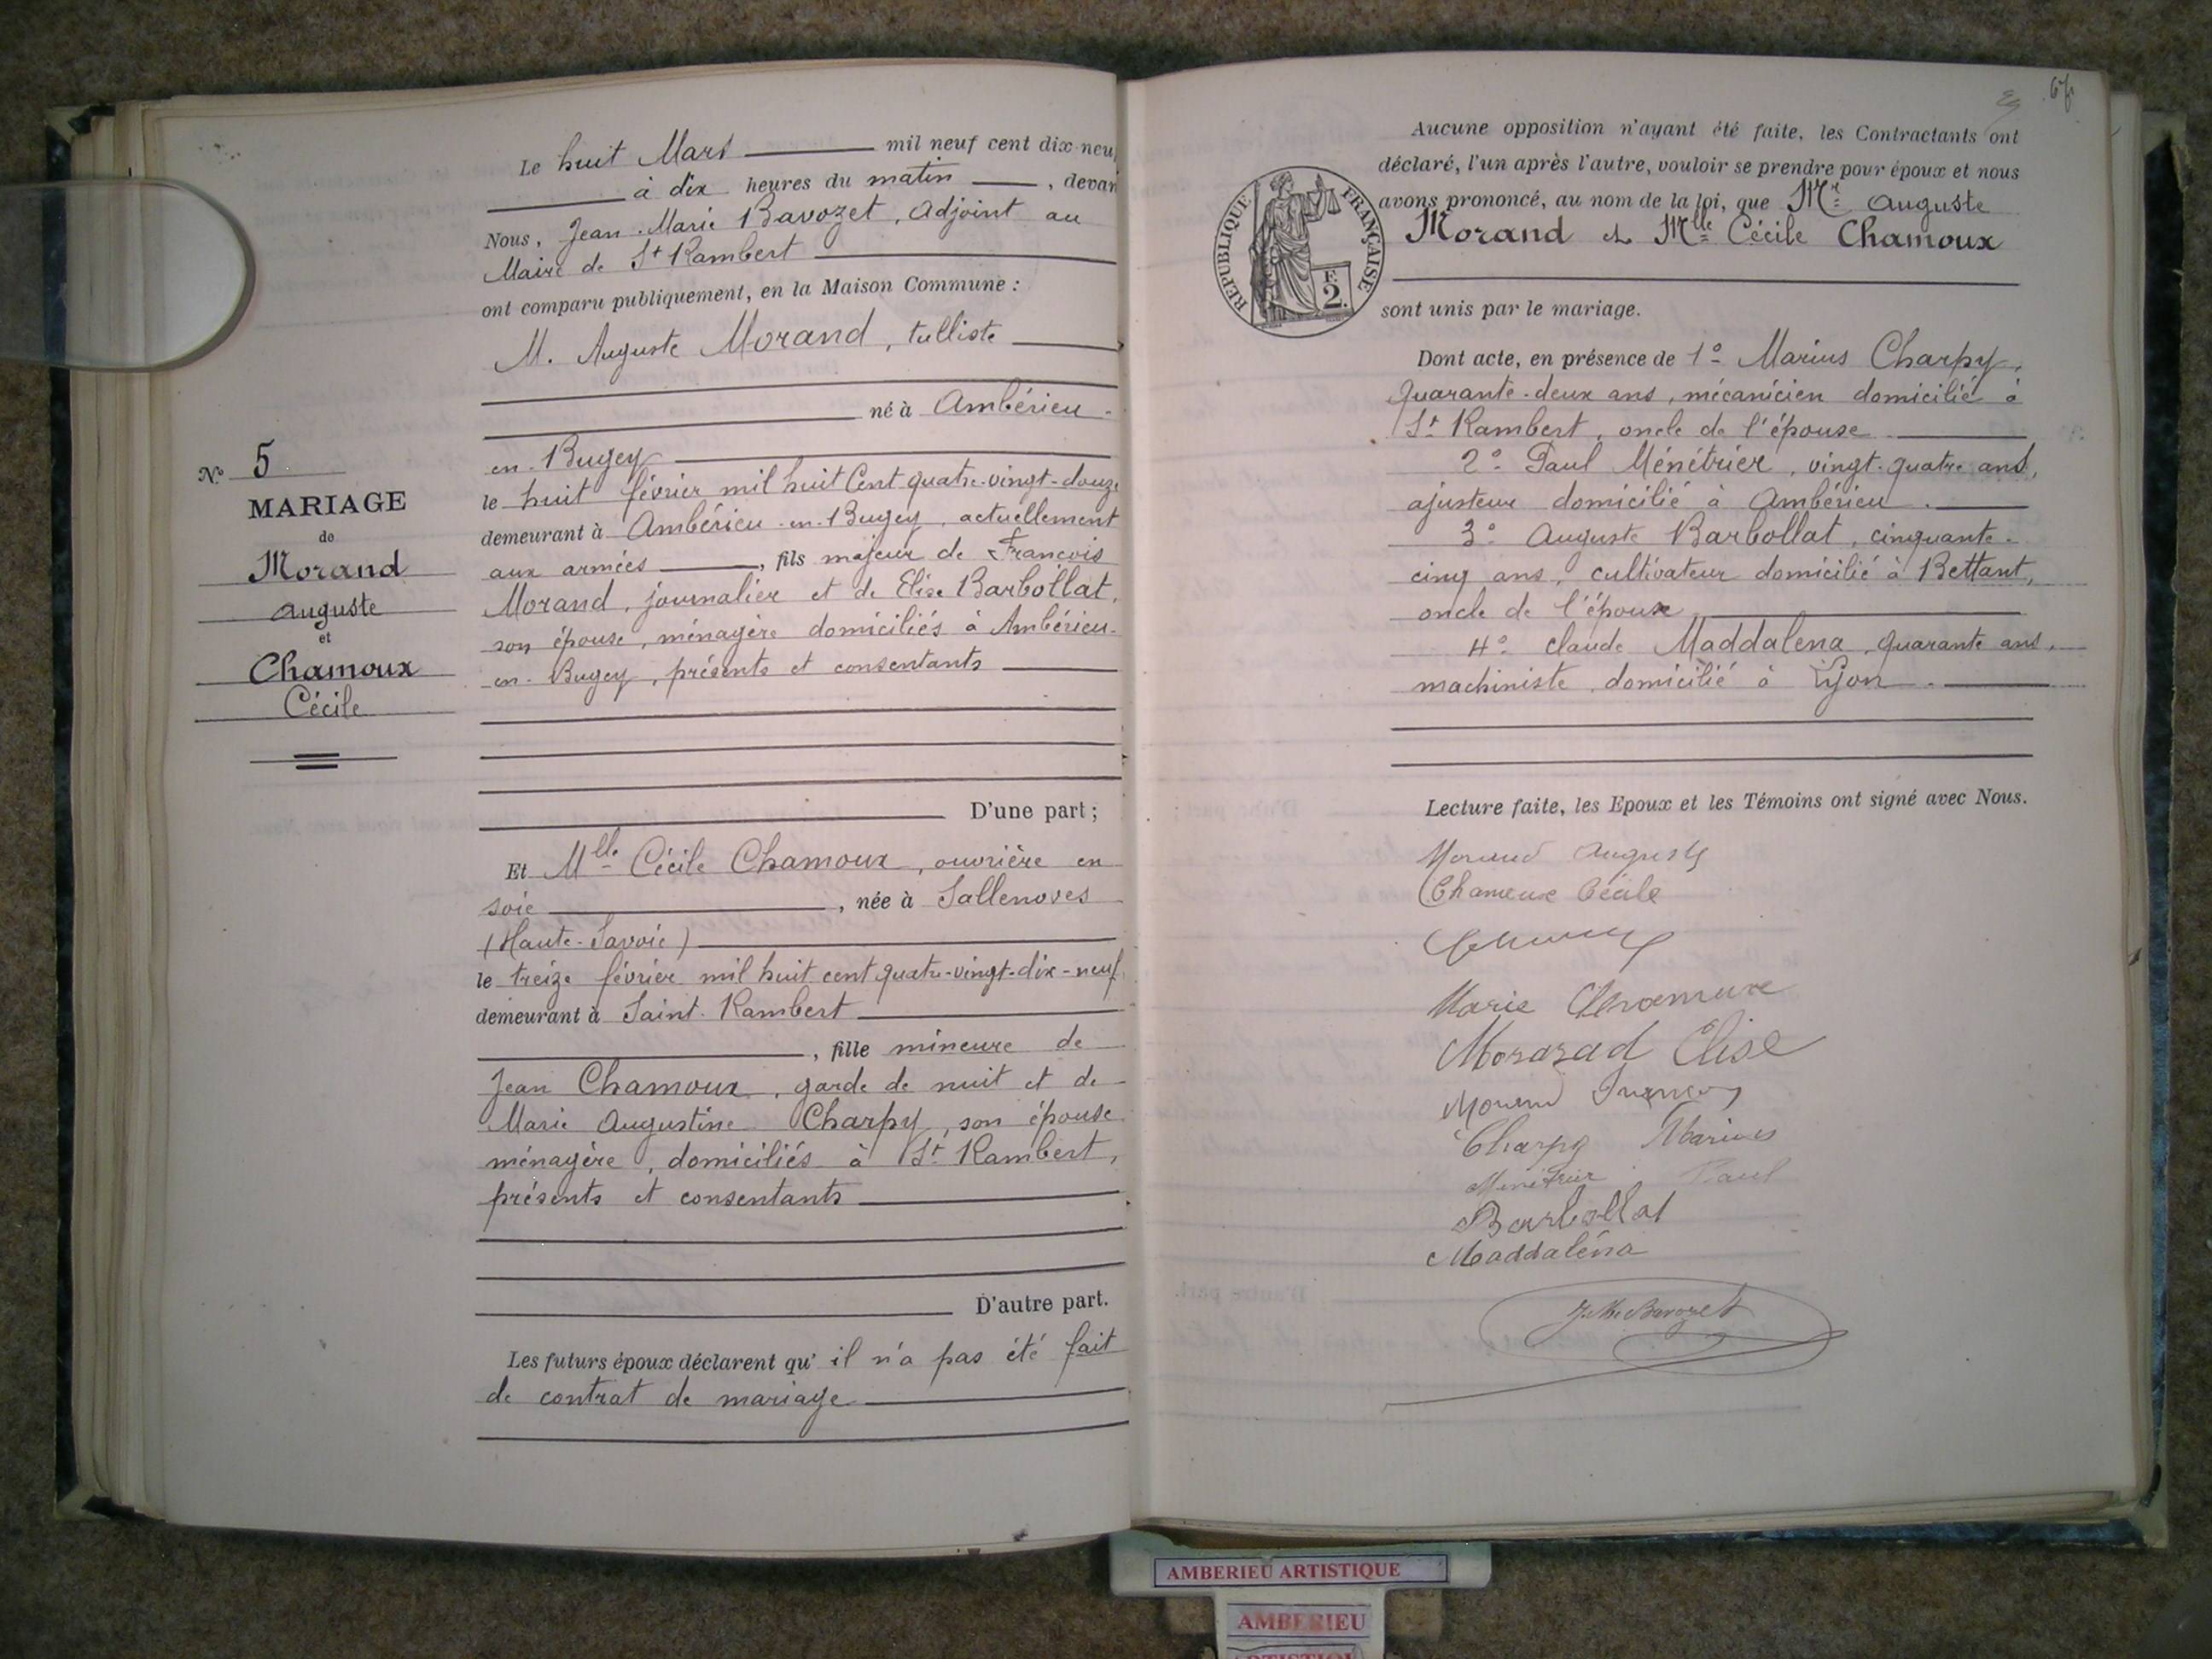 Le huit Mars mil neuf cent dix-neuf
à dix heures du matin, devan
Nous, Jean-Marie Bavozet, Adjoint au
Maire de St Rambert
ont comparu publiquement, en la Maison Commune :
M. Auguste Morand, tulliste
né à Ambérieu-
Nº 5
MARIAGE
de
Morand
Auguste
et
Chamoux
Cécile
en-Bugey
le huit février mil huit Cent quatre-vingt-douze
demeurant à Ambérieu-en-Bugey, actuellement
aux armées, fils majeur de François
Morand, journalier et de Elise Barbollat,
son épouse, ménagère domiciliés à Ambérieu-
en-Bugey, présents et consentants
D'une part ;
Et Mlle Cécile Chamoux, ouvrière en
soie, née à Sallenoves
(Haute-Savoie)
le treize février mil huit cent quatre-vingt-dix-neuf
demeurant à Saint-Rambert
, fille mineure de
Jean Chamoux, garde de nuit et de
Marie Augustine Charpy, son épouse
ménagère, domiciliés à St Rambert,
présents et consentants
D'autre part.
Les futurs époux déclarent qu'il n'a pas été fait
de contrat de mariage
Aucune opposition n'ayant été faite, les Contractants ont
déclaré, l'un après l'autre, vouloir se prendre pour époux et nous
avons prononcé, au nom de la loi, que Mr Auguste
Morand et Mlle Cécile Chamoux
REPUBLIQUE FRANÇAISE
E.
2.
sont unis par le mariage.
Dont acte, en présence de 1º Marius Charpy,
quarante-deux ans, mécanicien domicilié à
St Rambert, oncle de l'épouse
2º Paul Ménétrier, vingt-quatre ans,
ajusteur domicilié à Ambérieu.
3º Auguste Barbollat, cinquante-
cinq ans, cultivateur domicilié à Bettant,
oncle de l'époux
4º Claude Maddalena, quarante ans,
machiniste domicilié à Lyon.
Lecture faite, les Epoux et les Témoins ont signé avec Nous.
Morand Auguste
Chamoux Cécile
Marie Chamoux
Morand Elise
Morand François
Charpy Marius
Ménétrier Paul
Barbollat
Maddaléna
J. M. Bavozet
AMBERIEU ARTISTIQUE
AMBERIEU
ARTISTIQU